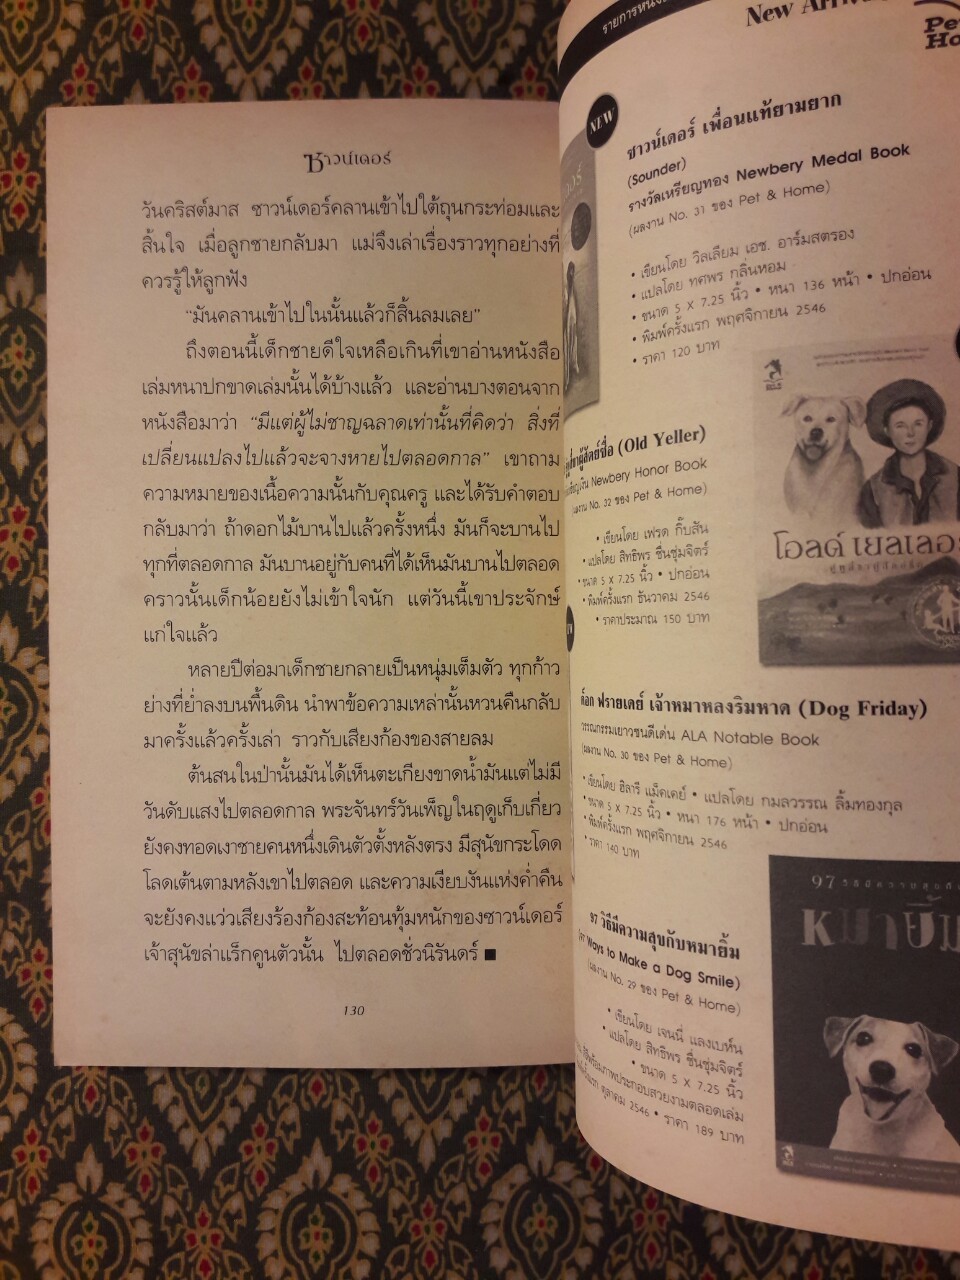 ซาวน์เดอร์
วันคริสต์มาส ซาวน์เดอร์คลานเข้าไปใต้ถุนกระท่อมและ
สิ้นใจ เมื่อลูกชายกลับมา แม่จึงเล่าเรื่องราวทุกอย่างที่
ควรรู้ให้ลูกฟัง
“มันคลานเข้าไปในนั้นแล้วก็สิ้นลมเลย”
ถึงตอนนี้เด็กชายดีใจเหลือเกินที่เขาอ่านหนังสือ
เล่มหนาปกขาดเล่มนั้นได้บ้างแล้ว และอ่านบางตอนจาก
หนังสือมาว่า “มีแต่ผู้ไม่ชาญฉลาดเท่านั้นที่คิดว่า สิ่งที่
เปลี่ยนแปลงไปแล้วจะจางหายไปตลอดกาล” เขาถาม
ความหมายของเนื้อความนั้นกับคุณครู และได้รับคำตอบ
กลับมาว่า ถ้าดอกไม้บานไปแล้วครั้งหนึ่ง มันก็จะบานไป
ทุกที่ตลอดกาล มันบานอยู่กับคนที่ได้เห็นมันบานไปตลอด
คราวนั้นเด็กน้อยยังไม่เข้าใจนัก แต่วันนี้เขาประจักษ์
แก่ใจแล้ว
หลายปีต่อมาเด็กชายกลายเป็นหนุ่มเต็มตัว ทุกก้าว
ย่างที่ย่ำลงบนพื้นดิน นำพาข้อความเหล่านั้นหวนคืนกลับ
มาครั้งแล้วครั้งเล่า ราวกับเสียงก้องของสายลม
ต้นสนในป่านั้นมันได้เห็นตะเกียงขาดน้ำมันแต่ไม่มี
วันดับแสงไปตลอดกาล พระจันทร์วันเพ็ญในฤดูเก็บเกี่ยว
ยังคงทอดเงาชายคนหนึ่งเดินตัวตั้งหลังตรง มีสุนัขกระโดด
โลดเต้นตามหลังเขาไปตลอด และความเงียบงันแห่งค่ำคืน
จะยังคงแว่วเสียงร้องก้องสะท้อนทุ้มหนักของซาวน์เดอร์
เจ้าสุนัขล่าแร็กคูนตัวนั้น ไปตลอดชั่วนิรันดร์ ■
130
New
NEW
ซาวน์เดอร์ เพื่อนแท้ยามยาก
(Sounder)
รางวัลเหรียญทอง Newbery Medal Book
(ผลงาน No. 31 ของ Pet & Home)
• เขียนโดย วิลเลียม เอช. อาร์มสตรอง
• แปลโดย ทศพร กลิ่นหอม
• ขนาด 5 X 7.25 นิ้ว • หนา 136 หน้า • ปกอ่อน
• พิมพ์ครั้งแรก พฤศจิกายน 2546
• ราคา 120 บาท
ผู้สัตย์ซื่อ (Old Yeller)
Newbery Honor Book
(ผลงาน No. 32 ของ Pet & Home)
• เขียนโดย เฟรด กิ๊บสัน
• แปลโดย สิทธิพร ชื่นชุ่มจิตร์
• ขนาด 5 X 7.25 นิ้ว • ปกอ่อน
• พิมพ์ครั้งแรก ธันวาคม 2546
• ราคาประมาณ 150 บาท
โอลด์ เยลเลอร์
ด็อก ฟรายเดย์ เจ้าหมาหลงริมหาด (Dog Friday)
วรรณกรรมเยาวชนดีเด่น ALA Notable Book
(ผลงาน No. 30 ของ Pet & Home)
• เขียนโดย ฮิลารี แม็คเคย์ • แปลโดย กมลวรรณ ลิ้มทองกุล
• ขนาด 5 X 7.25 นิ้ว • หนา 176 หน้า • ปกอ่อน
• พิมพ์ครั้งแรก พฤศจิกายน 2546
• ราคา 140 บาท
97 วิธีมีความสุขกับหมายิ้ม
Ways to Make a Dog Smile)
(ผลงาน No. 29 ของ Pet & Home)
• เขียนโดย เจนนี่ แลงเบห์น
• แปลโดย สิทธิพร ชื่นชุ่มจิตร์
• ขนาด 5 X 7.25 นิ้ว
ภาพประกอบสวยงามตลอดเล่ม
ตุลาคม 2546 • ราคา 189 บาท
หมายิ้ม